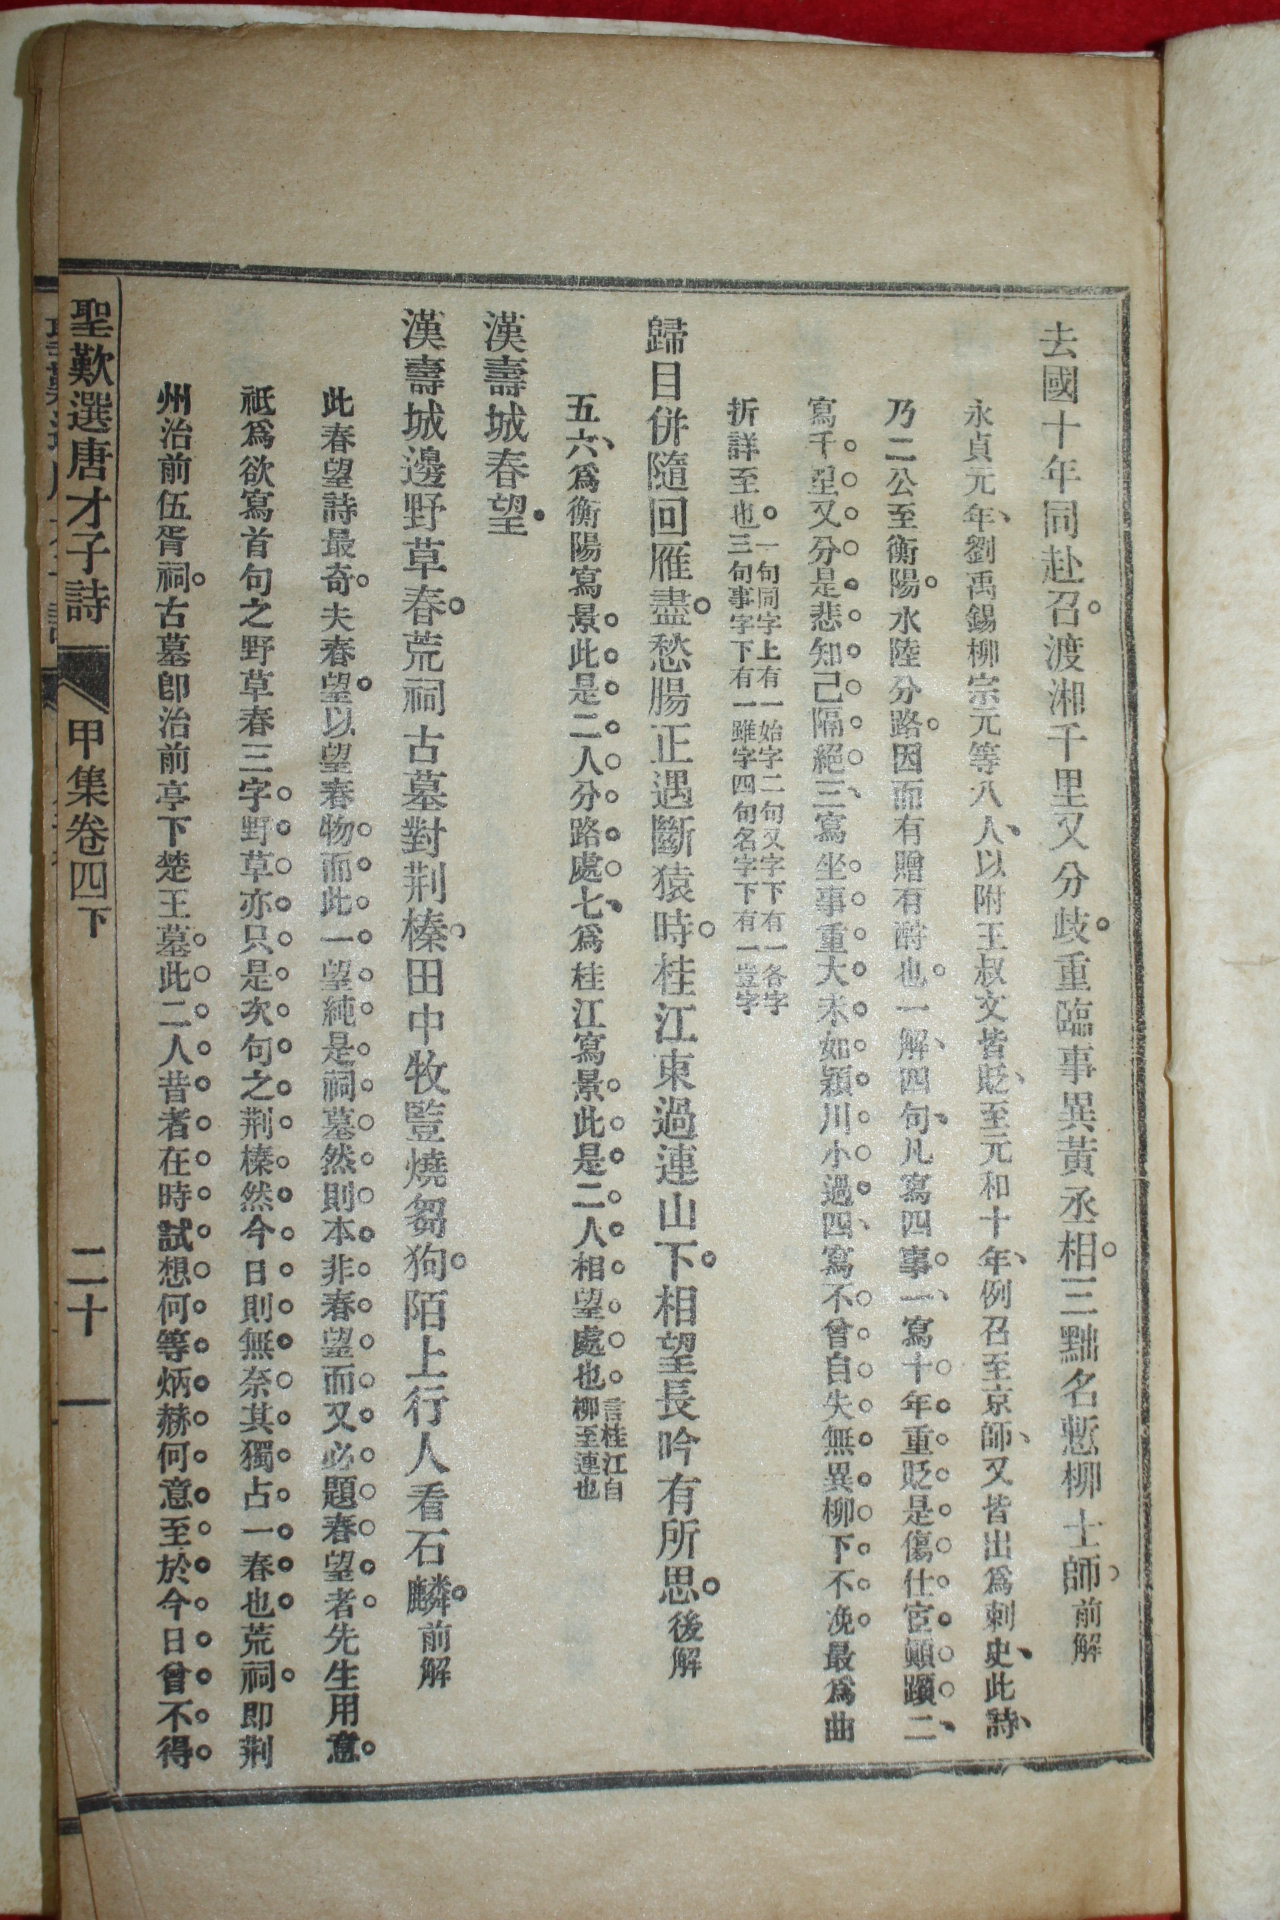 去國十年同赴召渡湘千里又分歧重臨事異黃丞相三黜名慙柳士師前解
永貞元年劉禹錫柳宗元等八人以附王叔文皆貶至元和十年例召至京師又皆出爲刺史此詩
乃二公至衡陽水陸分路因而有贈有酹也一解四句凡寫四事一寫十年重貶是傷仕宦顚躓二
寫千里又分是悲知己隔絕三寫坐事重大未如潁川小過四寫不曾自失無異柳下不浼最爲曲
折詳至也一句同字上有一始字二句又字下有一各字
三句事字下有一雖字四句名字下有一豈字
歸目併隨回雁盡愁腸正遇斷猿時桂江東過連山下相望長吟有所思後解
五六爲衡陽寫景此是二人分路處七爲桂江寫景此是二人相望處也言桂江自
柳至連也
漢壽城春望
漢壽城邊野草春荒祠古墓對荆榛田中牧豎燒芻狗陌上行人看石麟前解
此春望詩最奇夫春望以望春物而此一望純是祠墓然則本非春望而又必題春望者先生用意
祇爲欲寫首句之野草春三字野草亦只是次句之荆榛然今日則無奈其獨占一春也荒祠即荆
州治前伍胥祠古墓卽治前亭下楚王墓此二人昔者在時試想何等炳赫何意至於今日曾不得
聖歎選唐才子詩 甲集卷四下 二十